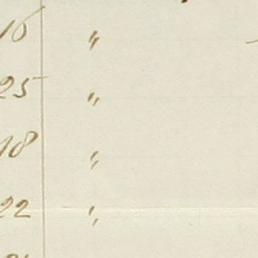 16 "
25 "
18 "
22 "